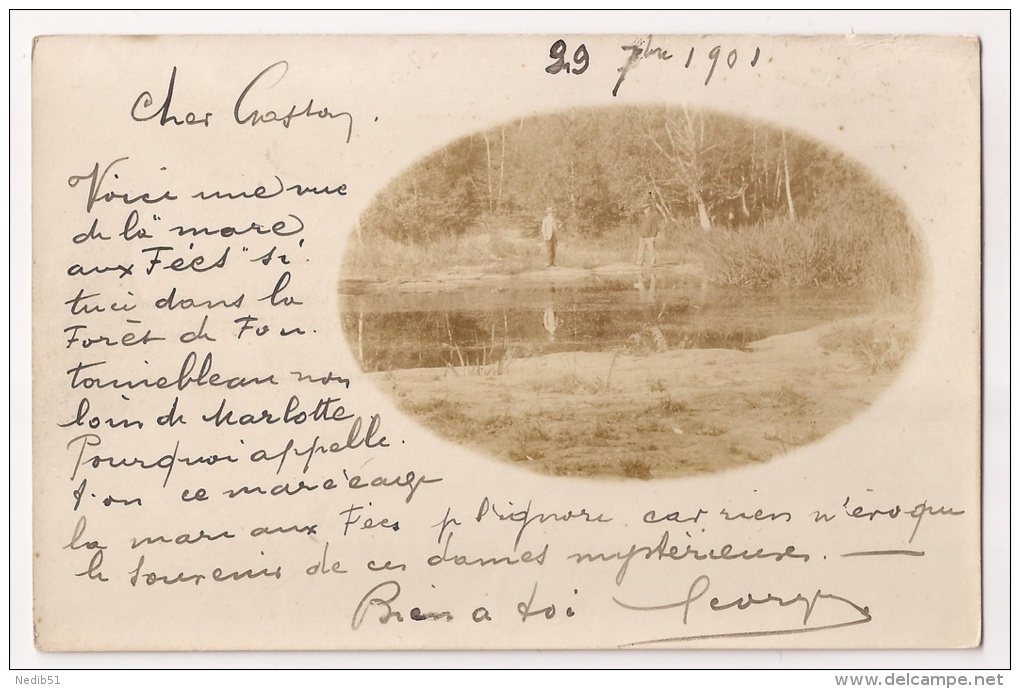 29 7bre 1901
Cher Gaston,
Voici une vue
de la "mare
aux Fées" si-
tuée dans la
Forêt de Fon-
tainebleau non
loin de Marlotte
Pourquoi appelle-
t-on ce marécage
la mare aux Fées je l'ignore car rien n'évoque
le souvenir de ces dames mystérieuses. —
Bien à toi Georges
Nedib51
www.delcampe.net